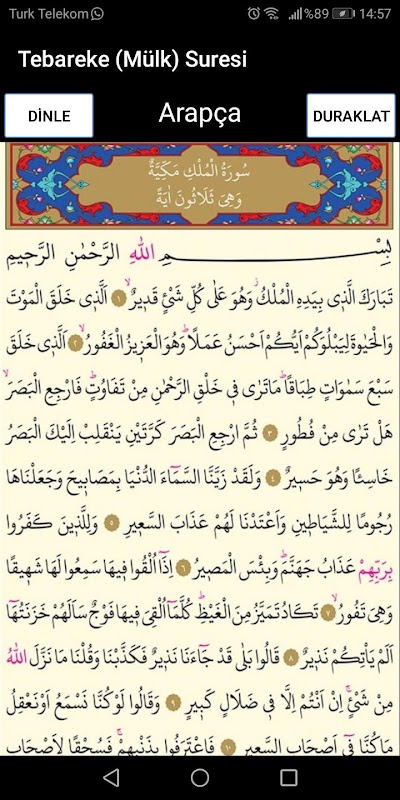 Turk Telekom %89 14:57
Tebareke (Mülk) Suresi
DİNLE Arapça DURAKLAT
سُورَةُ الْمُلْكِ مَكِّيَّةٌ
وَهِيَ ثَلَاثُونَ اٰيَةً
بِسْمِ اللّٰهِ الرَّحْمٰنِ الرَّحِيمِ
تَبَارَكَ الَّذ۪ي بِيَدِهِ الْمُلْكُۘ وَهُوَ عَلٰى كُلِّ شَيْءٍ قَد۪يرٌۙ ﴿١﴾ اَلَّذ۪ي خَلَقَ الْمَوْتَ
وَالْحَيٰوةَ لِيَبْلُوَكُمْ اَيُّكُمْ اَحْسَنُ عَمَلًاۜ وَهُوَ الْعَز۪يزُ الْغَفُورُۙ ﴿٢﴾ اَلَّذ۪ي خَلَقَ
سَبْعَ سَمٰوَاتٍ طِبَاقًاۜ مَا تَرٰى ف۪ي خَلْقِ الرَّحْمٰنِ مِنْ تَفَاوُتٍۜ فَارْجِعِ الْبَصَرَۙ
هَلْ تَرٰى مِنْ فُطُورٍ ﴿٣﴾ ثُمَّ ارْجِعِ الْبَصَرَ كَرَّتَيْنِ يَنْقَلِبْ اِلَيْكَ الْبَصَرُ
خَاسِئًا وَهُوَ حَس۪يرٌ ﴿٤﴾ وَلَقَدْ زَيَّنَّا السَّمَٓاءَ الدُّنْيَا بِمَصَاب۪يحَ وَجَعَلْنَاهَا
رُجُومًا لِلشَّيَاط۪ينِ وَاَعْتَدْنَا لَهُمْ عَذَابَ السَّع۪يرِ ﴿٥﴾ وَلِلَّذ۪ينَ كَفَرُوا
بِرَبِّهِمْ عَذَابُ جَهَنَّمَۜ وَبِئْسَ الْمَص۪يرُ ﴿٦﴾ اِذَٓا اُلْقُوا ف۪يهَا سَمِعُوا لَهَا شَه۪يقًا
وَهِيَ تَفُورُۙ ﴿٧﴾ تَكَادُ تَمَيَّزُ مِنَ الْغَيْظِۜ كُلَّمَٓا اُلْقِيَ ف۪يهَا فَوْجٌ سَاَلَهُمْ خَزَنَتُهَٓا
اَلَمْ يَأْتِكُمْ نَذ۪يرٌ ﴿٨﴾ قَالُوا بَلٰى قَدْ جَٓاءَنَا نَذ۪يرٌ فَكَذَّبْنَا وَقُلْنَا مَا نَزَّلَ اللّٰهُ
مِنْ شَيْءٍۚ اِنْ اَنْتُمْ اِلَّا ف۪ي ضَلَالٍ كَب۪يرٍ ﴿٩﴾ وَقَالُوا لَوْ كُنَّا نَسْمَعُ اَوْ نَعْقِلُ
مَا كُنَّا ف۪ٓي اَصْحَابِ السَّع۪يرِ ﴿١٠﴾ فَاعْتَرَفُوا بِذَنْبِهِمْۚ فَسُحْقًا لِاَصْحَابِ